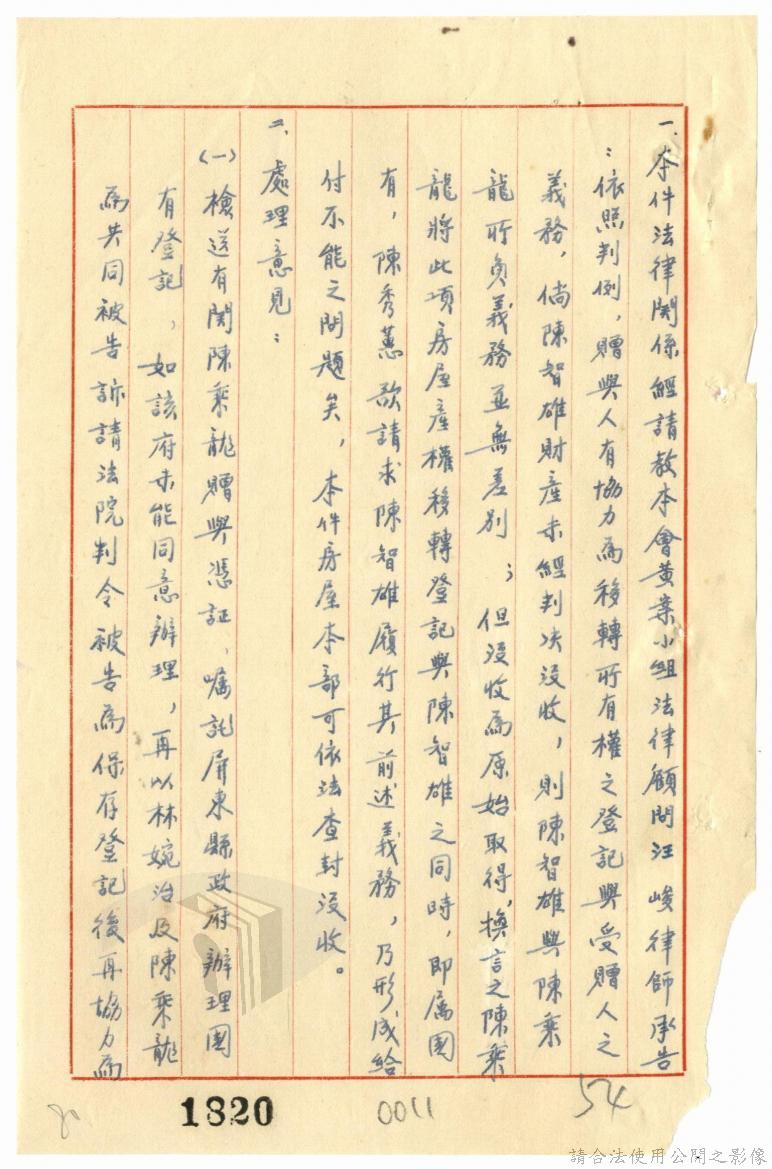 一、本件法律関係經請教本會黃案小組法律顧問汪峻律師承告
：依照判例，贈與人有協力為移轉所有權之登記與受贈人之
義務，倘陳智雄財產未經判决沒收，則陳智雄與陳秉
龍所負義務並無差別；但沒收為原始取得，換言之陳秉
龍將此項房屋產權移轉登記與陳智雄之同時，即属國
有，陳秀蕙欲請求陳智雄履行其前述義務，乃形成給
付不能之問題矣，本件房屋本部可依法查封沒收。
二、處理意見：
(一)檢送有関陳秉龍贈與憑証，囑託屏東縣政府辦理國
有登記，如該府未能同意辦理，再以林婉治及陳秉龍
為共同被告訴請法院判令被告為保存登記後再協力為
1820
0011
54
請合法使用公開之影像